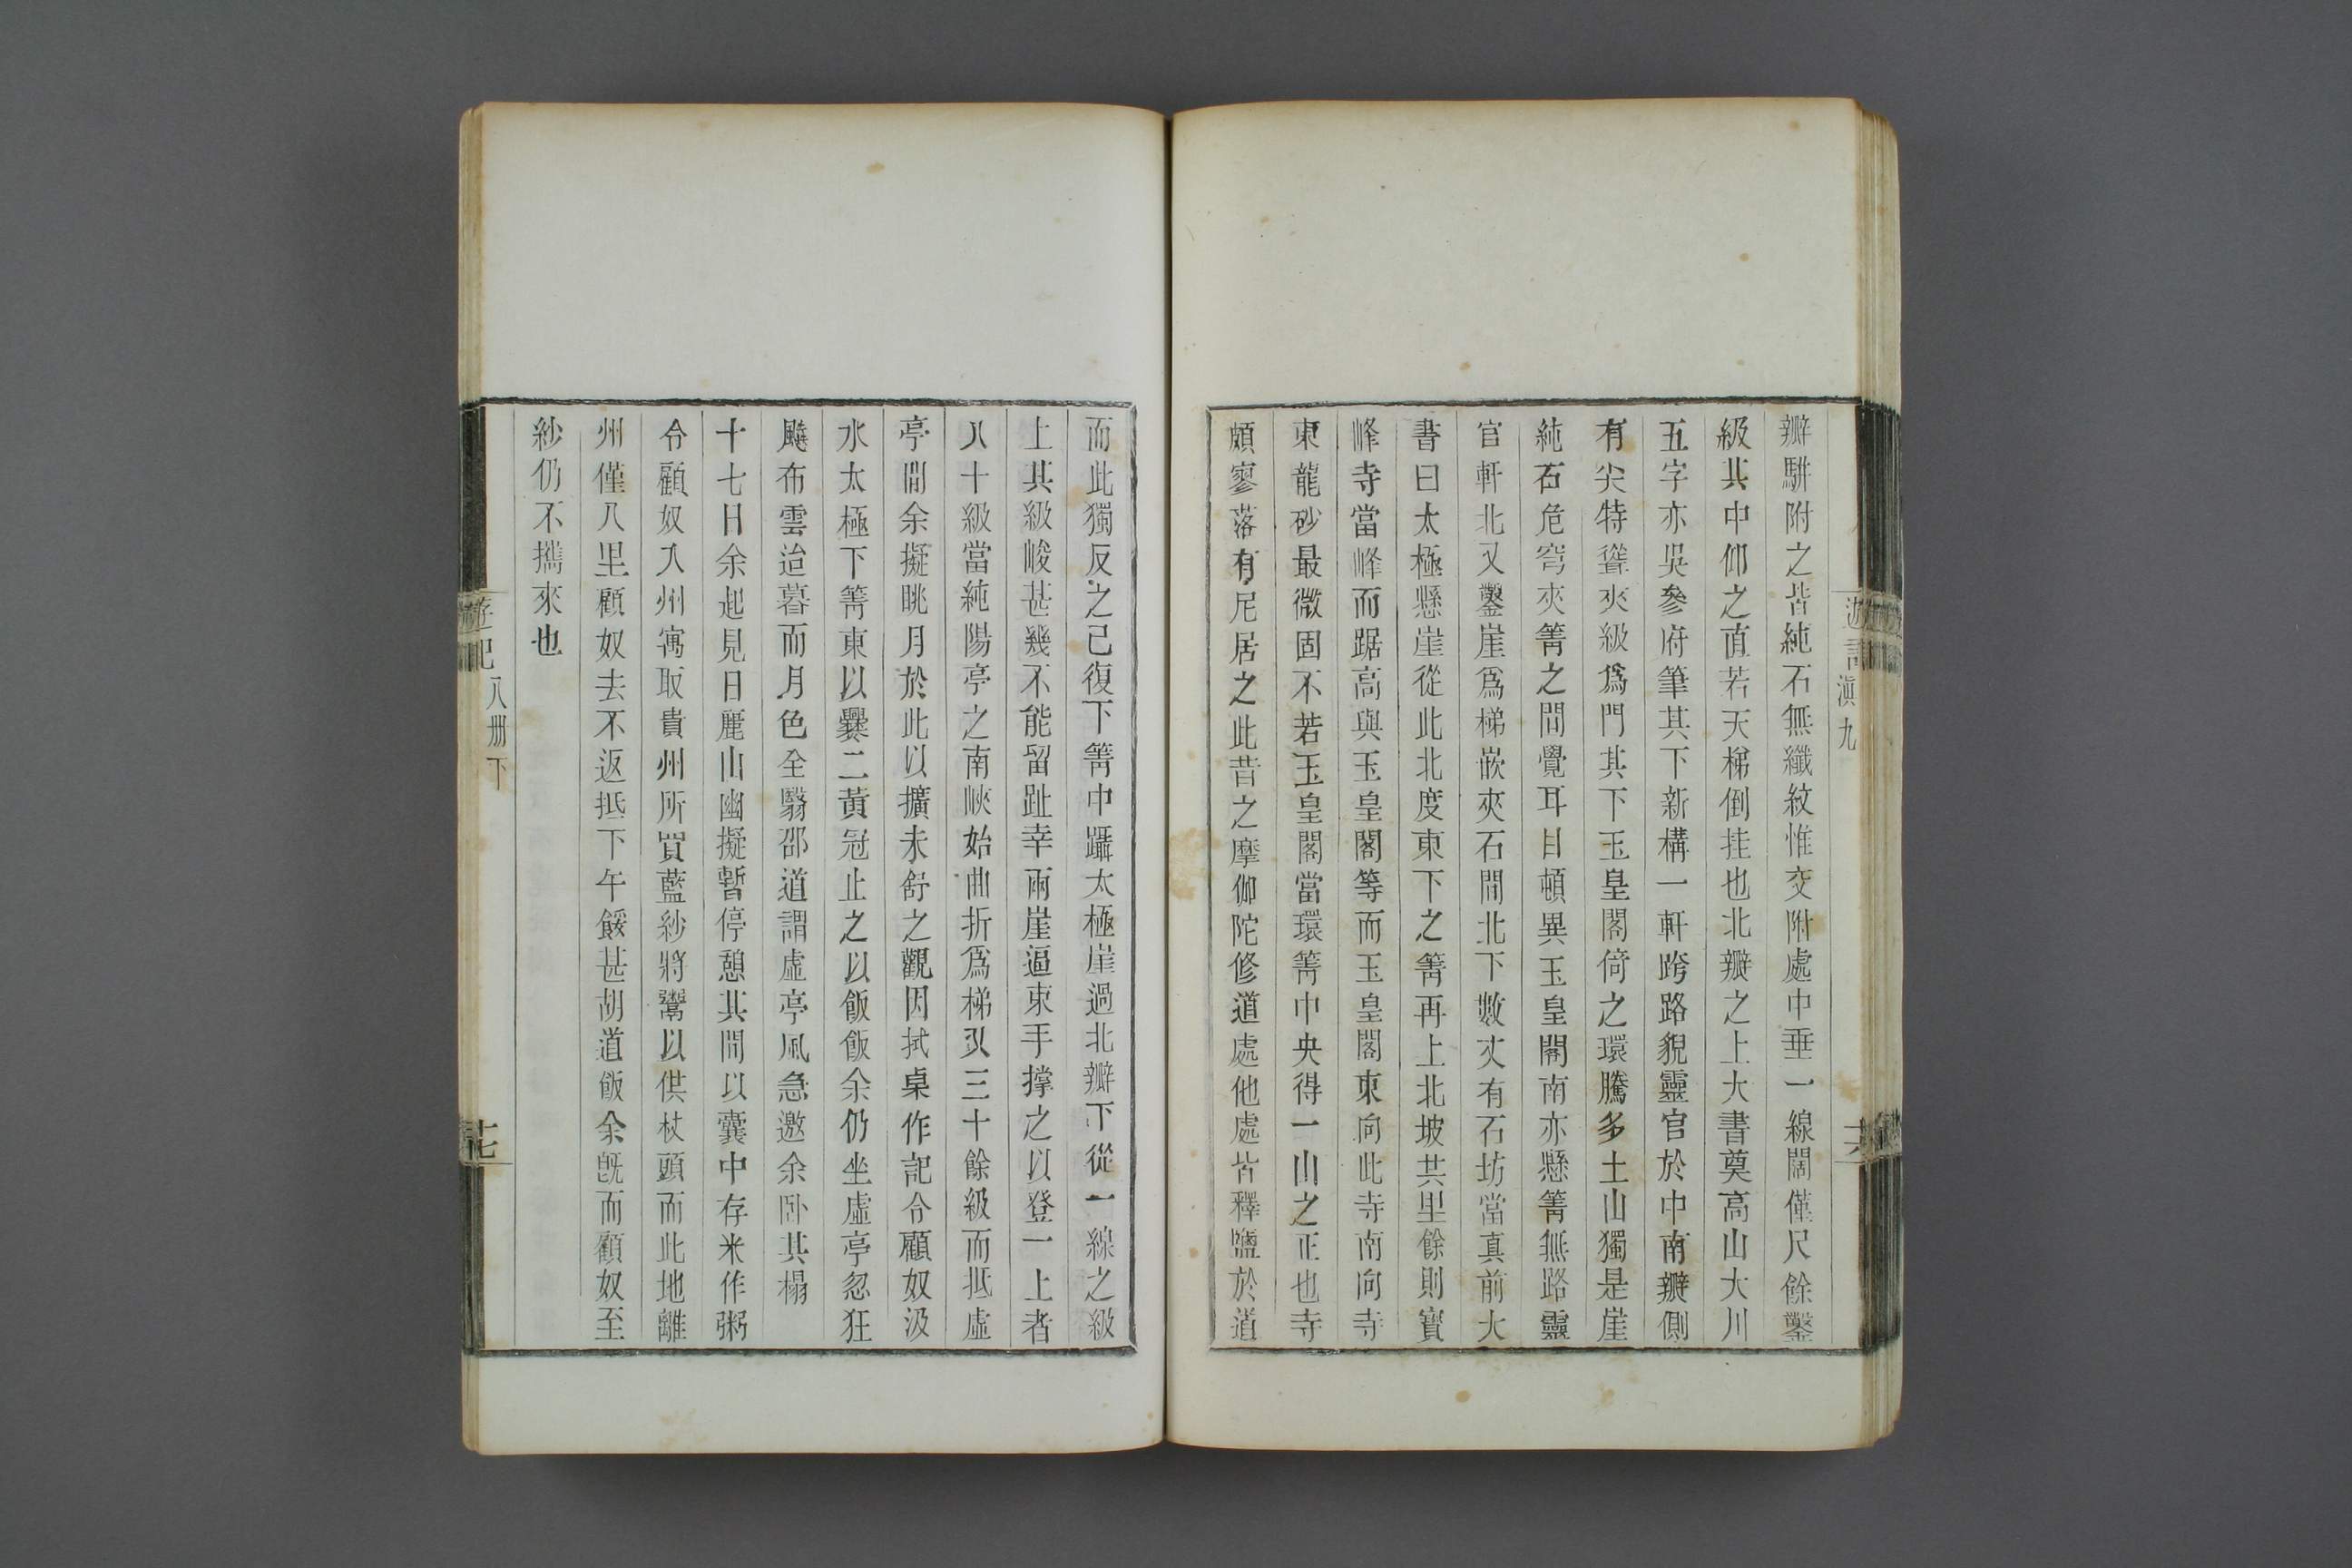 瓣駢附之皆純石無纖紋惟交附處中垂一線闊僅尺餘鑿
級其中仰之直若天梯倒挂也北瓣之上大書奠高山大川
五字亦吳參府筆其下新構一軒跨路貌靈官於中南瓣側
有尖特聳夾級爲門其下玉皇閣倚之環騰多土山獨是崖
純石危穹夾箐之間覺耳目頓異玉皇閣南亦懸箐無路靈
官軒北又鑿崖爲梯嵌夾石間北下數丈有石坊當真前大
書曰太極懸崖從此北度東下之箐再上北坡共里餘則寳
峰寺當峰而踞高與玉皇閣等而玉皇閣東向此寺南向寺
東龍砂最微固不若玉皇閣當環箐中央得一山之正也寺
頗寥落有尼居之此昔之摩伽陀修道處他處皆釋鹽於道
遊記
滇九
十六
而此獨反之已復下箐中躡太極崖過北瓣下從一線之級
上其級峻甚幾不能留趾幸兩崖逼束手撑之以登一上者
八十級當純陽亭之南峽始曲折爲梯又三十餘級而抵虛
亭間余擬眺月於此以擴未舒之觀因拭桌作記令顧奴汲
水太極下箐東以爨二黃冠止之以飯飯余仍坐虛亭忽狂
飈布雲迨暮而月色全翳邵道謂虛亭風急邀余卧其榻
十七日余起見日麗山幽擬暫停憩其間以囊中存米作粥
令顧奴入州寓取貴州所買藍紗將鬻以供杖頭而此地離
州僅八里顧奴去不返抵下午餒甚胡道飯余旣而顧奴至
紗仍不攜來也
遊記
八册下
十七